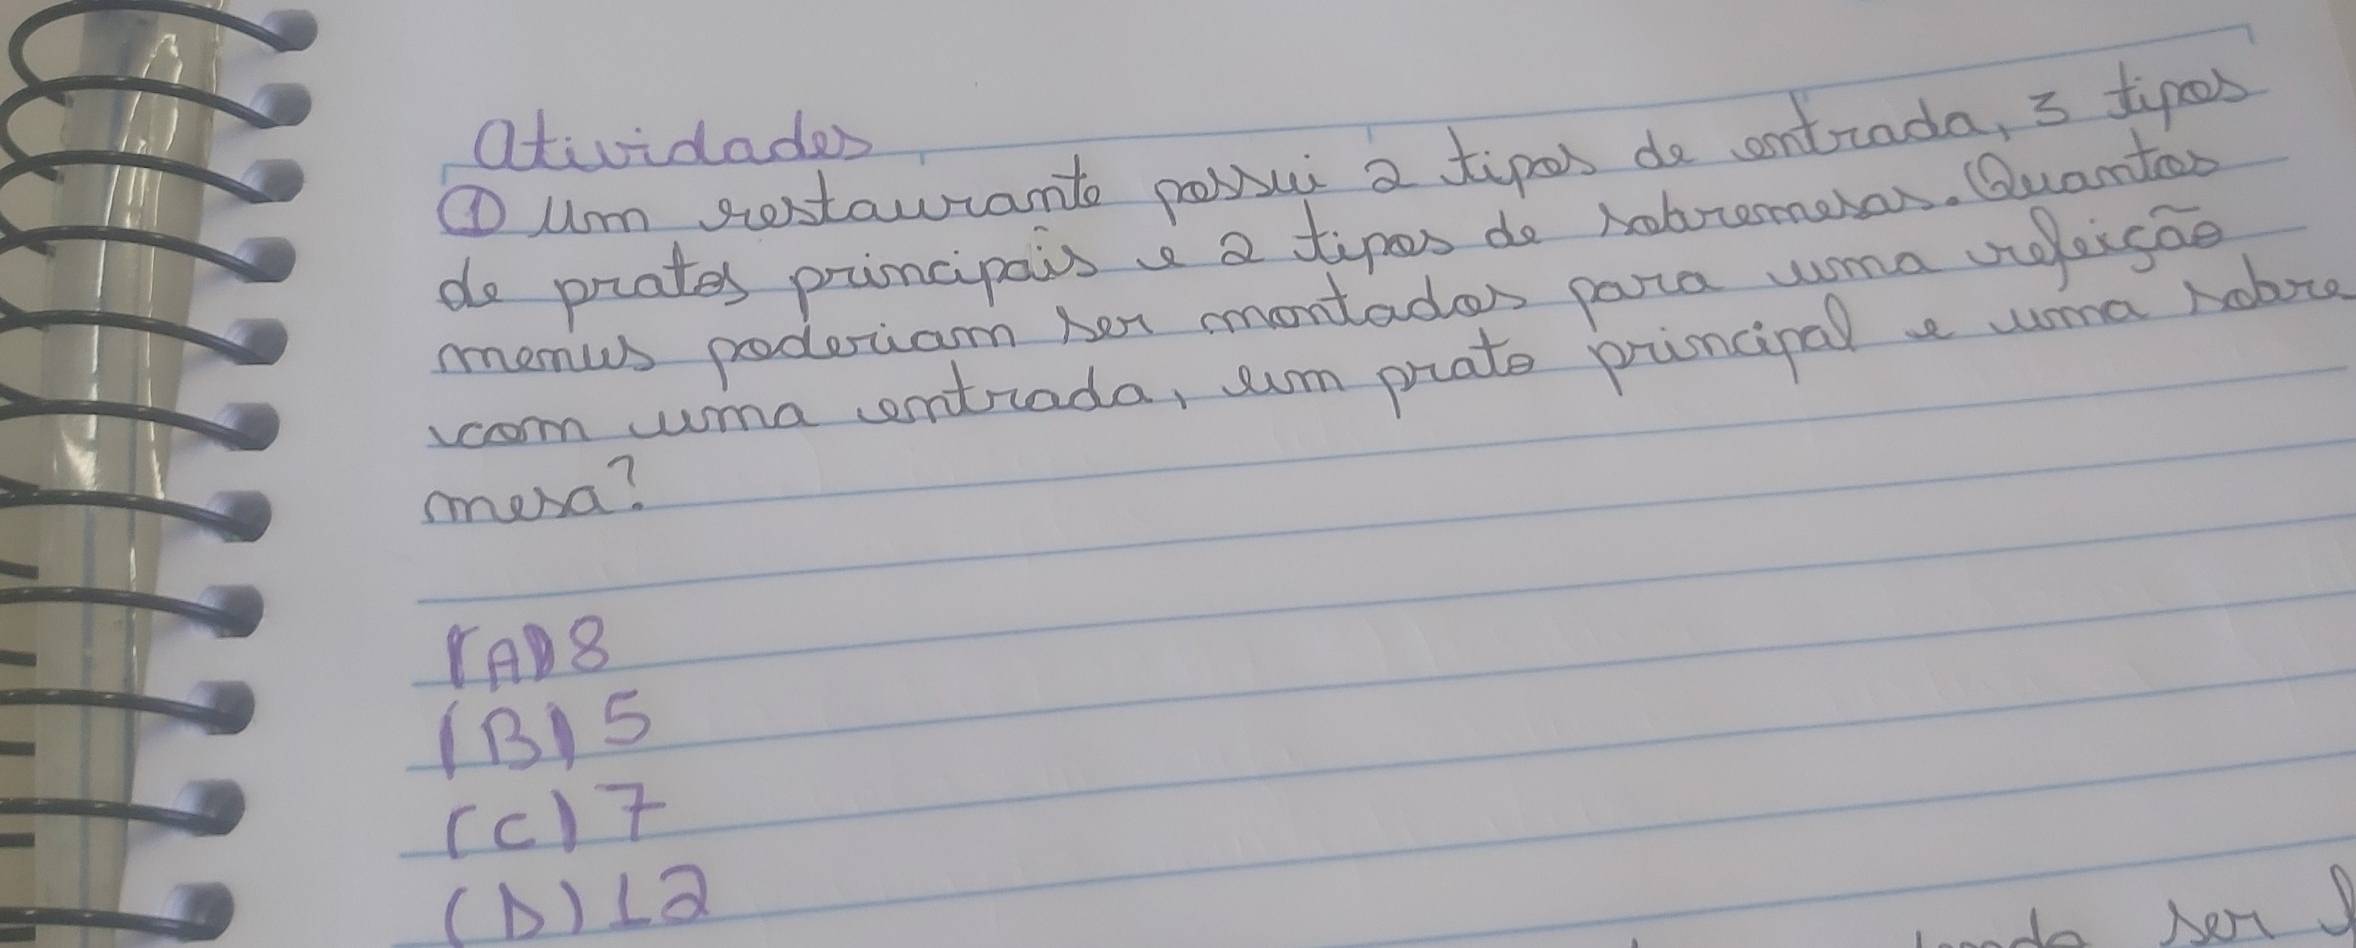 Atividades
① Um restaurante possui 2 tipos de entrada, 3 tipos
de pratos principais e 2 tipos de sobremesas. Quantos
menus poderiam ser montados para uma refeição
com uma entrada, um prato principal e uma sobre
mesa?
(A) 8
(B) 5
(C) 7
(D) 12
ser